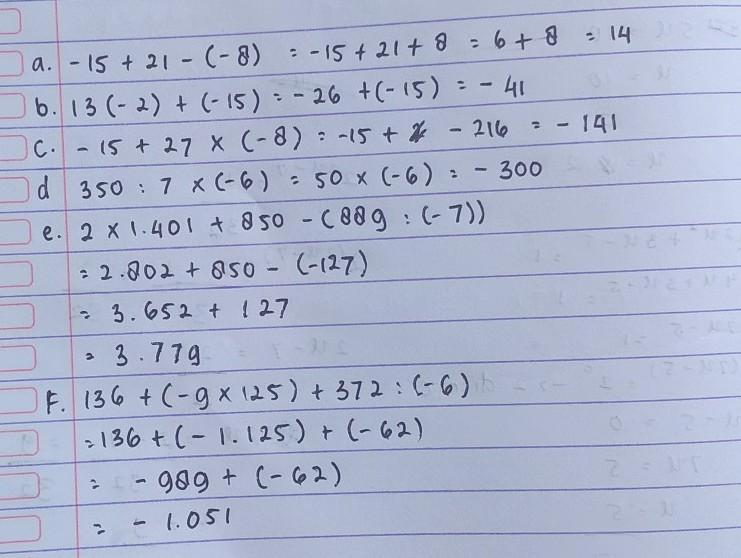 a. -15 + 21 - (-8) = -15 + 21 + 8 = 6 + 8 = 14
b. 13 (-2) + (-15) = -26 + (-15) = -41
c. -15 + 27 × (-8) = -15 + - 216 = - 141
d 350 : 7 × (-6) = 50 × (-6) = - 300
e. 2 × 1.401 + 850 - (889 : (-7))
= 2.802 + 850 - (-127)
= 3.652 + 127
= 3.779
F. 136 + (-9 × 125) + 372 : (-6)
= 136 + (- 1.125) + (-62)
= - 989 + (-62)
= - 1.051